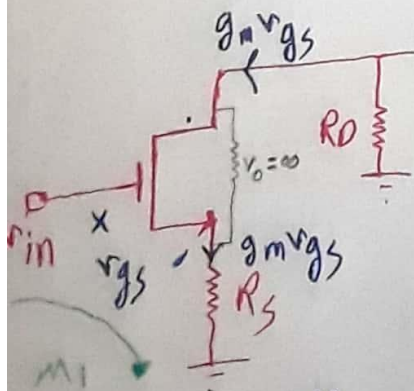 gmvgs
RD
ro=∞
x
rin
vgs
gmvgs
RS
M1